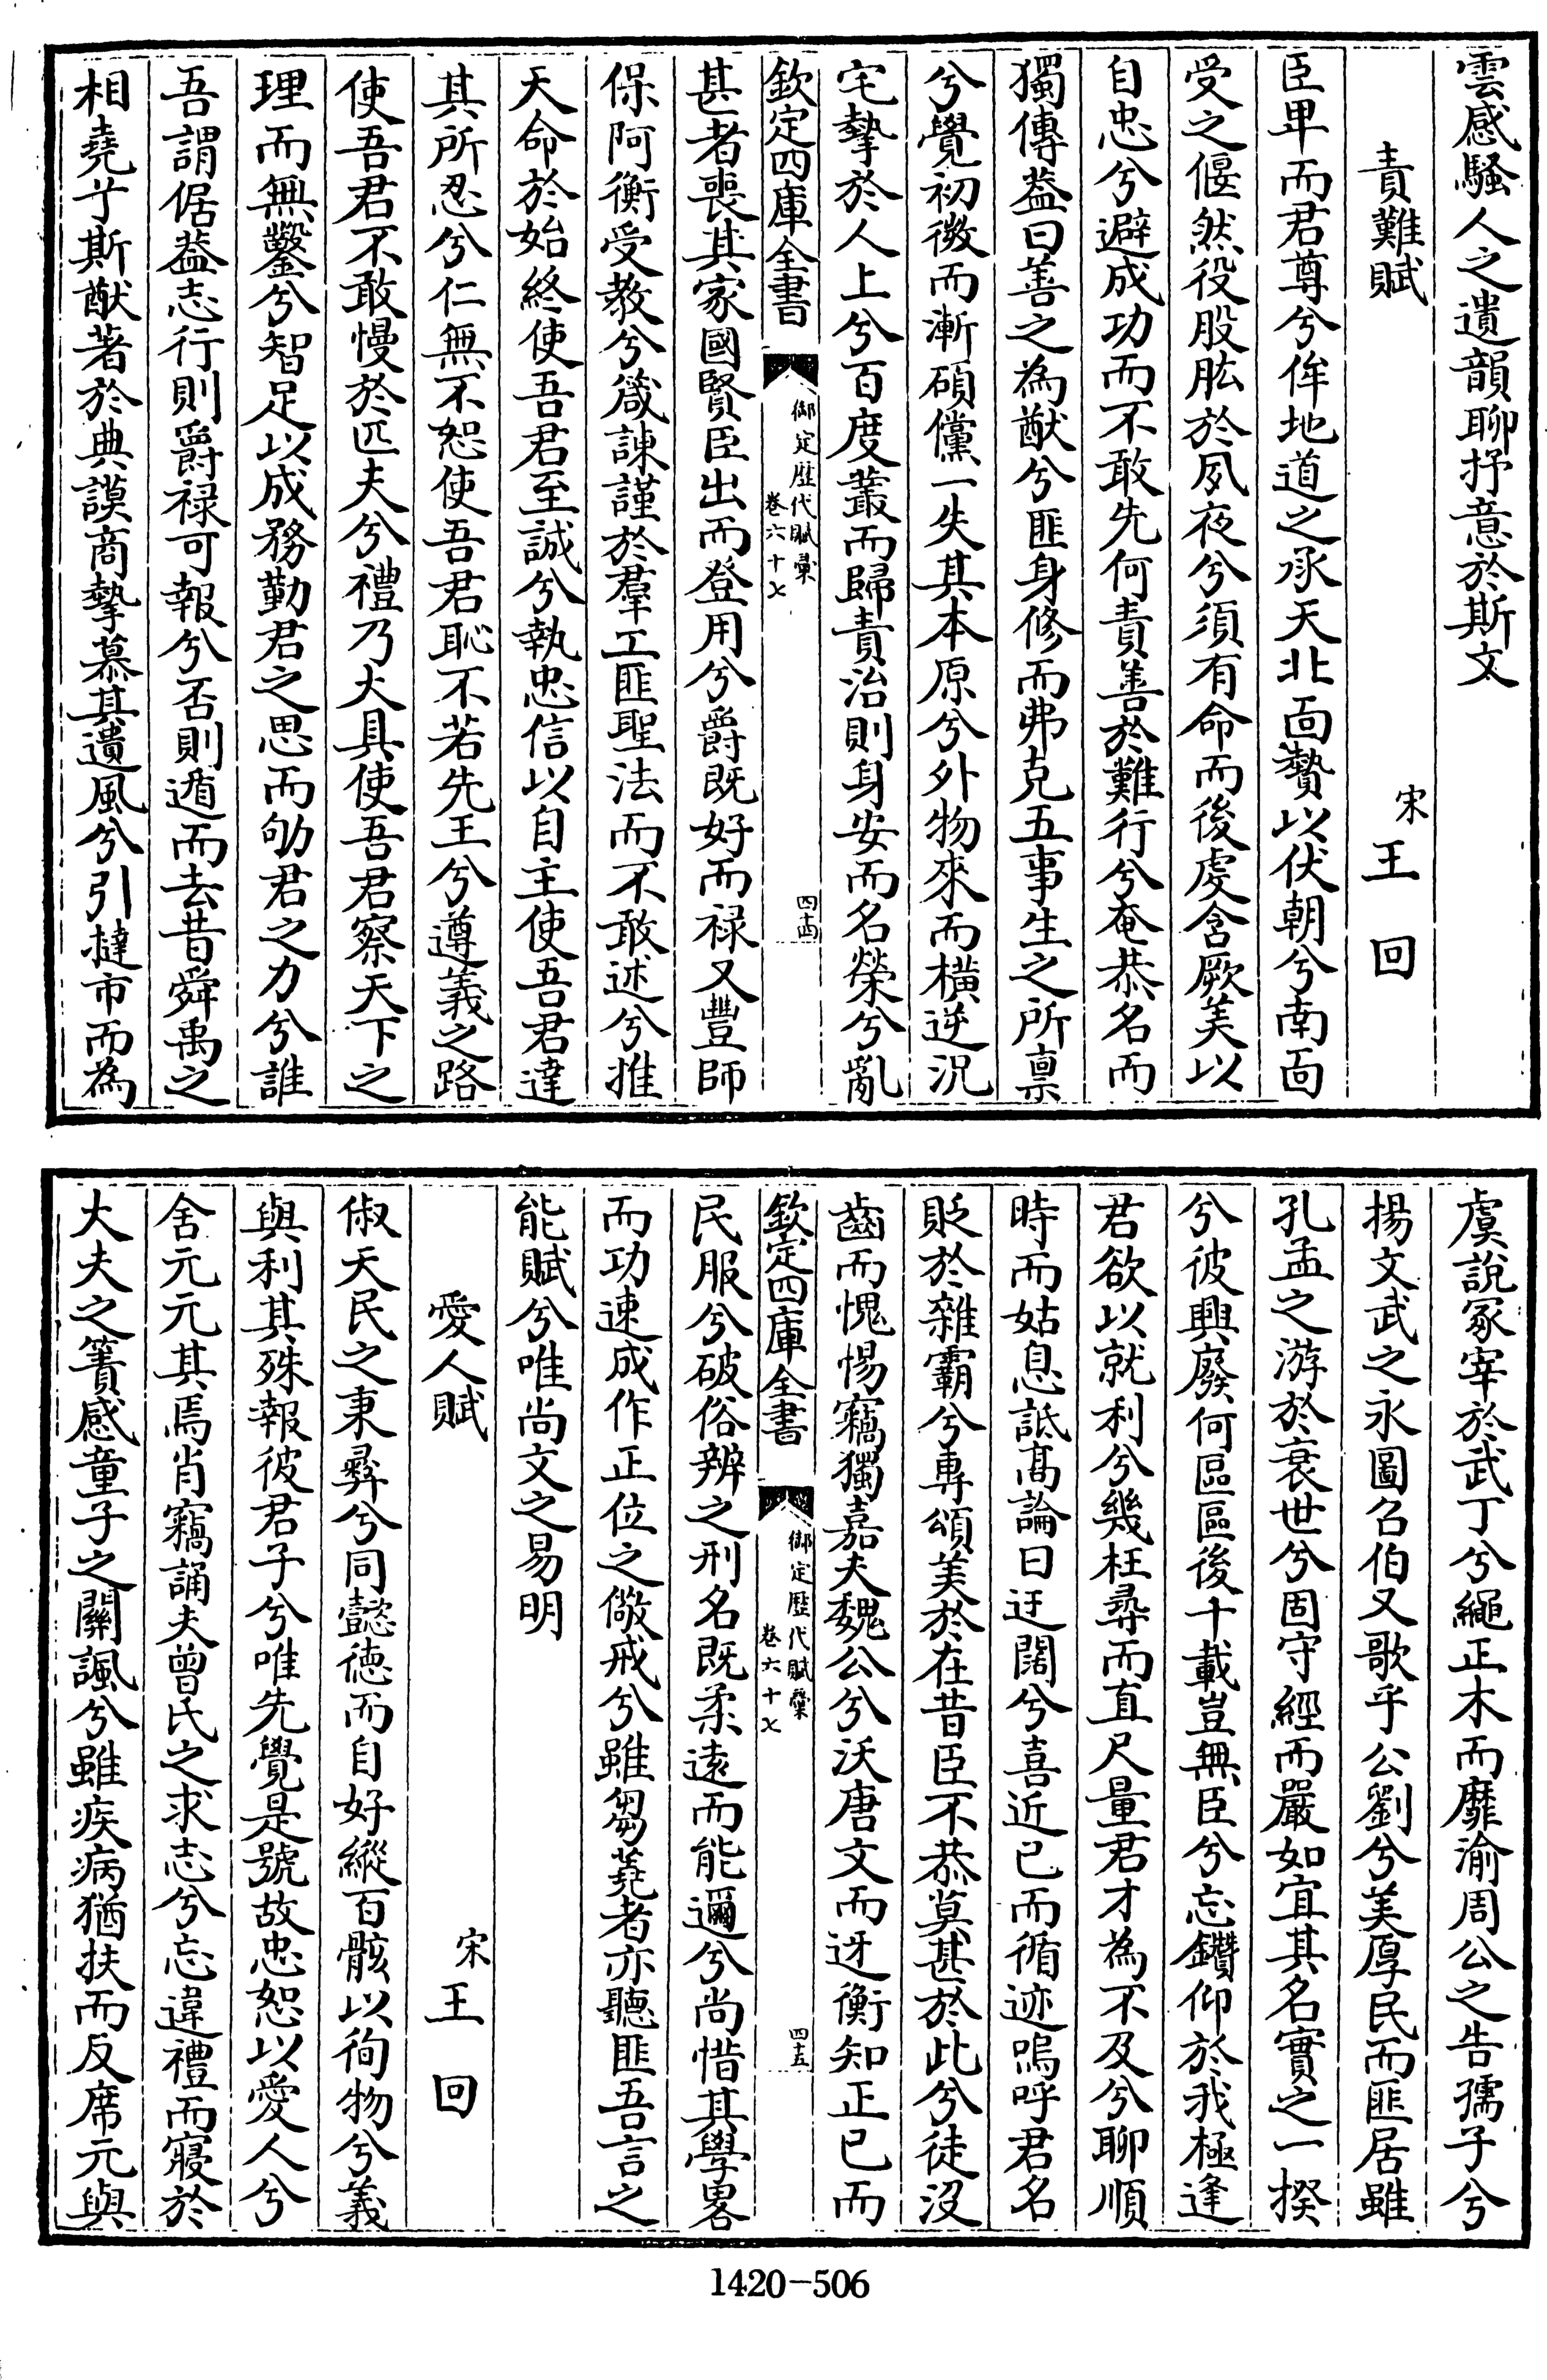 雲感騷人之遺韻聊抒意於斯文
責難賦
宋王回
臣卑而君尊兮侔地道之承天北面贄以伏朝兮南面
受之偃然役股肱於夙夜兮須有命而後處含厥美以
自忠兮避成功而不敢先何責善於難行兮奄恭名而
獨傳葢曰善之為猷兮匪身修而弗克五事生之所禀
兮覺初微而漸碩儻一失其本原兮外物來而橫逆況
宅摯於人上兮百度叢而歸責治則身安而名榮兮亂
欽定四庫全書
御定歷代賦彙
卷六十七
四十四
甚者喪其家國賢臣出而登用兮爵既好而祿又豐師
保阿衡受教兮箴諫謹於羣工匪聖法而不敢述兮推
天命於始終使吾君至誠兮執忠信以自主使吾君達
其所忍兮仁無不恕使吾君恥不若先王兮遵義之路
使吾君不敢慢於匹夫兮禮乃大具使吾君察天下之
理而無鑿兮智足以成務勤君之思而劬君之力兮誰
吾謂倨葢志行則爵祿可報兮否則遁而去昔舜禹之
相堯兮斯猷著於典謨商摯慕其遺風兮引撻市而為
虞說冢宰於武丁兮繩正木而靡渝周公之告孺子兮
揚文武之永圖召伯又歌乎公劉兮美厚民而匪居雖
孔孟之游於衰世兮固守經而嚴如宜其名實之一揆
兮彼興廢何區區後十載豈無臣兮忘鑽仰於我極逢
君欲以就利兮幾枉尋而直尺量君才為不及兮聊順
時而姑息詆高論曰迂闊兮喜近已而循迹嗚呼君名
貶於雜霸兮專頌美於在昔臣不恭莫甚於此兮徒沒
齒而愧惕竊獨嘉夫魏公兮沃唐文而迓衡知正已而
欽定四庫全書
御定歷代賦彙
卷六十七
四十五
民服兮破俗辨之刑名既柔遠而能邇兮尚惜其學畧
而功速成作正位之儆戒兮雖芻蕘者亦聽匪吾言之
能賦兮唯尚文之易明
愛人賦
宋王回
俶天民之秉彞兮同懿德而自好縱百骸以徇物兮義
與利其殊報彼君子兮唯先覺是號故忠恕以愛人兮
舍元元其焉肖竊誦夫曾氏之求志兮忘違禮而寢於
大夫之簀感童子之關諷兮雖疾病猶扶而反席元與
1420-506